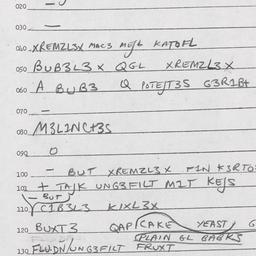 020
030
040 XREMZL3X MAC3 KATOFL
050 BUB3L3X QGL XREMZL3X
060 A BUB3 Q POTEJT35 G3R1B+
070 —
080 M3L1NC+3S
090 O
100 — BUT XREMZL3X F1N K3RTO
101 + TAJK UNG3F1LT M1T KEJS
BUT
110 C1B3L3 K1XL3X
120 BUXT3 QAP CAKE YEAST G
PLAIN GL BAGKS
130 FLUDN/UNG3F1LT FRUXT